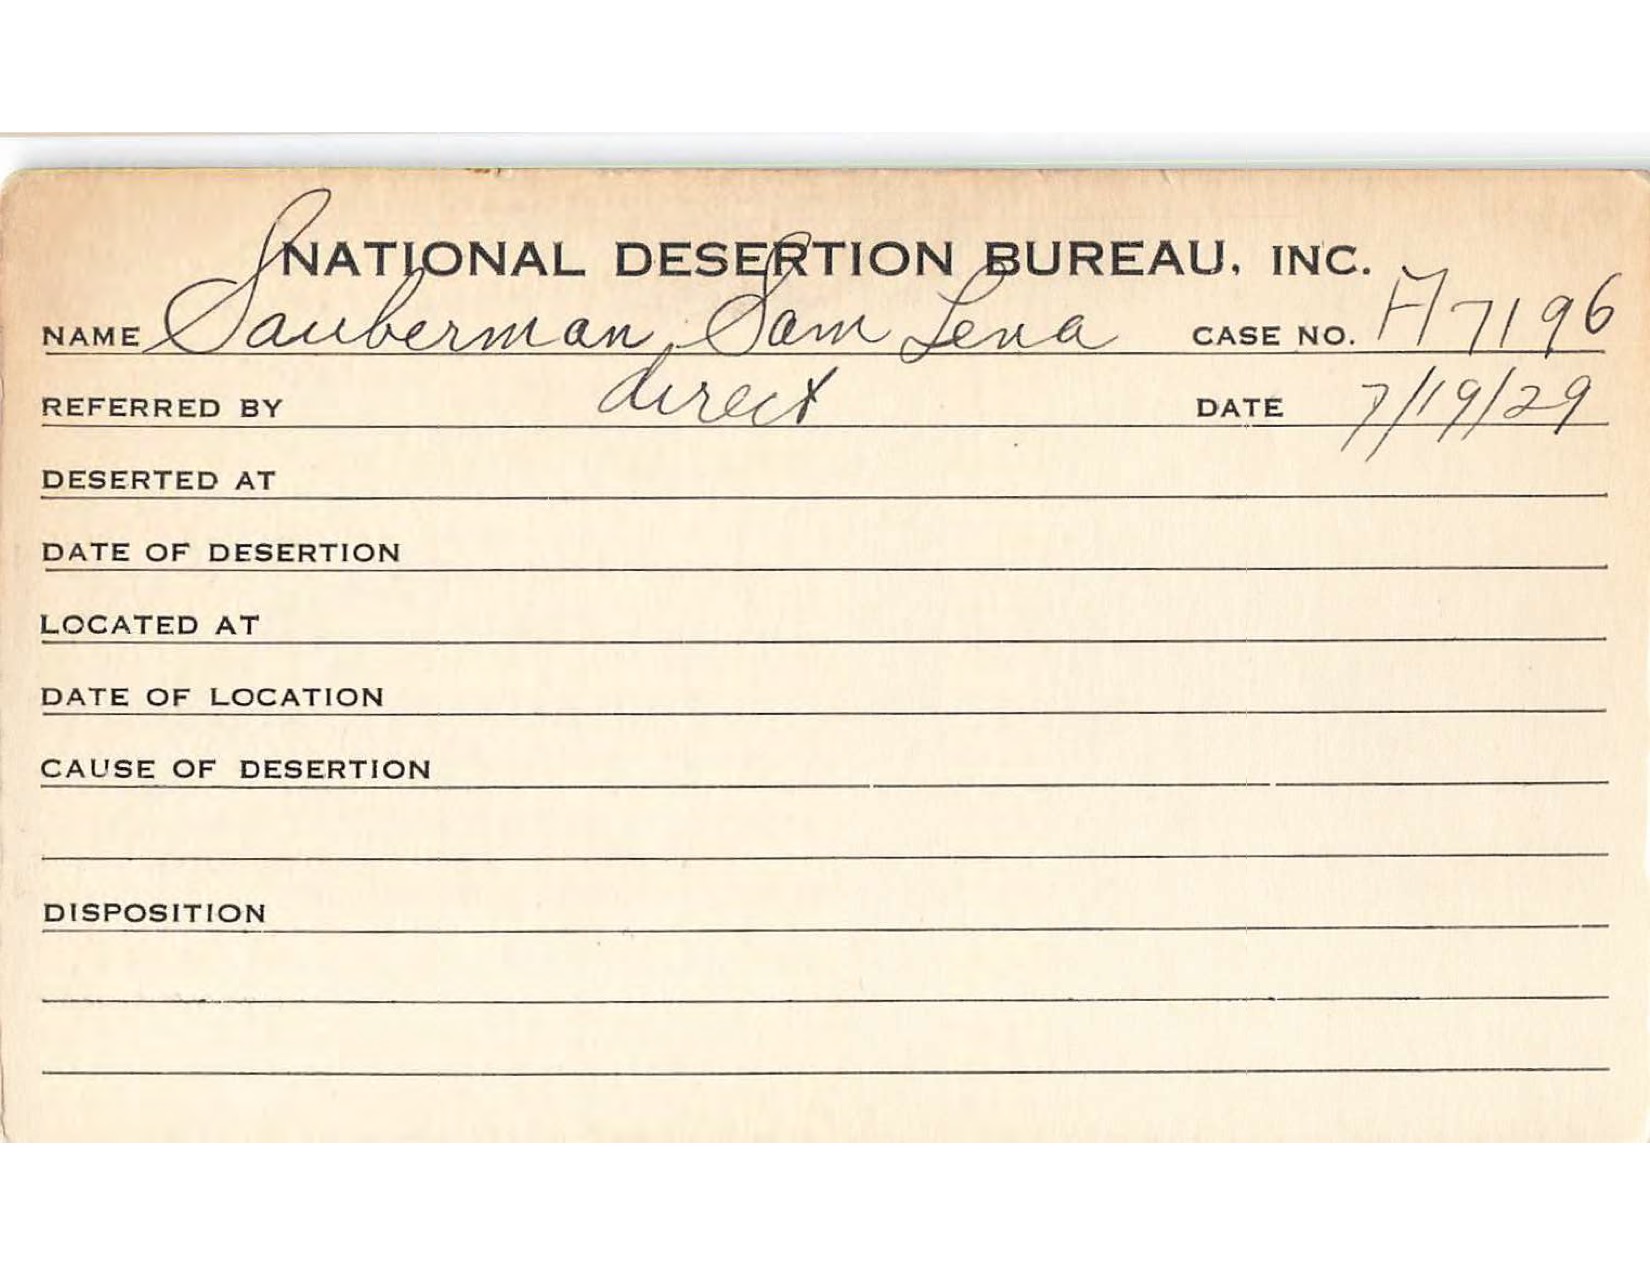 NATIONAL DESERTION BUREAU, INC.
NAME Sauberman, Sam Lena CASE NO. A7196
REFERRED BY direct DATE 7/19/29
DESERTED AT
DATE OF DESERTION
LOCATED AT
DATE OF LOCATION
CAUSE OF DESERTION
DISPOSITION